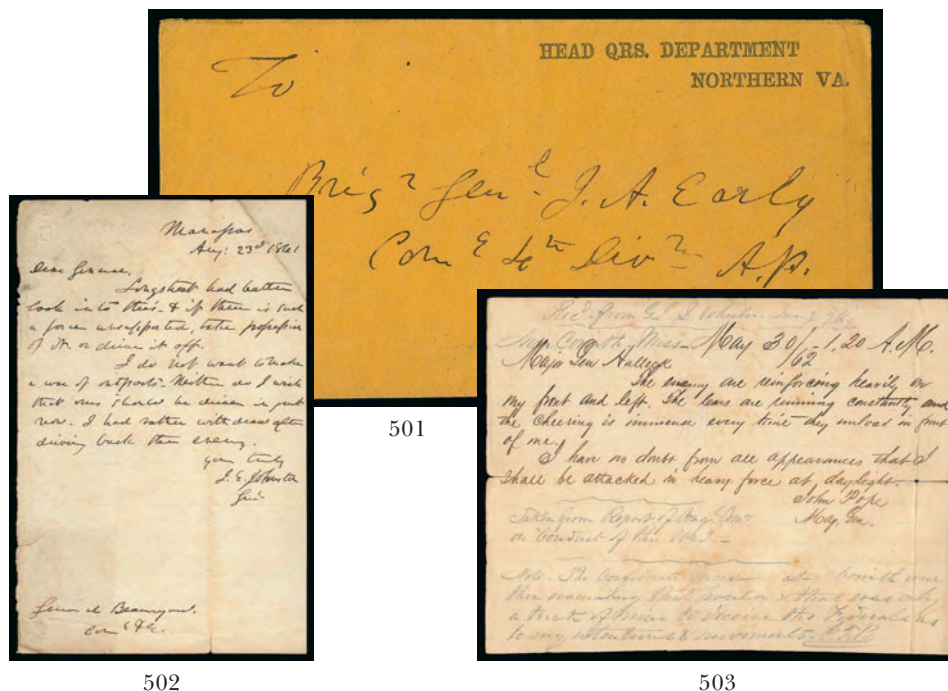 HEAD QRS. DEPARTMENT
NORTHERN VA.
To
Brigr Genl J. A. Early
Comg 4th Divn A.P.
501
Manassas
Aug: 23d 1861
Dear General,
Longstreet had better
look into this & if there is such
a force unsupported, take possession
of it or drive it off.
I do not want to make
a war of outposts. Neither do I wish
that ours should be driven in just
now. I had rather withdraw after
driving back the enemy.
Yours truly
J. E. Johnston
Genl
General Beauregard
Comg &c.
502
Recd from Genl J. Wheeler
Near Corinth, Miss - May 30/62 - 1.20 A.M.
Major Gen Halleck
The enemy are reinforcing heavily on
my front and left. The cars are running constantly and
the cheering is immense every time they unload in front
of me.
I have no doubt from all appearances that I
shall be attacked in heavy force at daylight.
John Pope
Maj. Gen.
Taken from Report of
on Conduct of the War -
Note - The Confederate at Corinth were
then evacuating that position & this was only
a trick of mine to deceive the Federals as
to my intentions & movements. G.T.B.
503